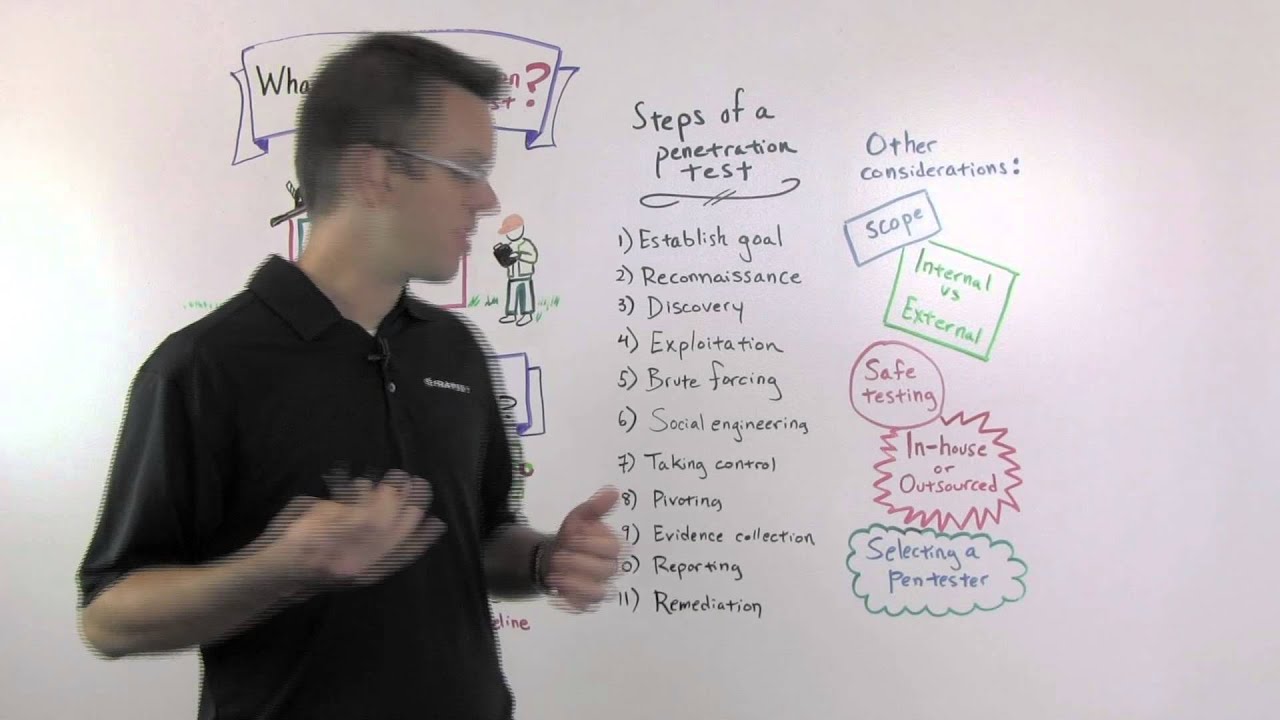 ?
Steps of a
penetration
test
1) Establish goal
2) Reconnaissance
3) Discovery
4) Exploitation
5) Brute forcing
6) Social engineering
7) Taking control
8) Pivoting
9) Evidence collection
0) Reporting
11) Remediation
Other
considerations:
Scope
Internal
vs
External
Safe
testing
In-house
or
Outsourced
Selecting a
pentester